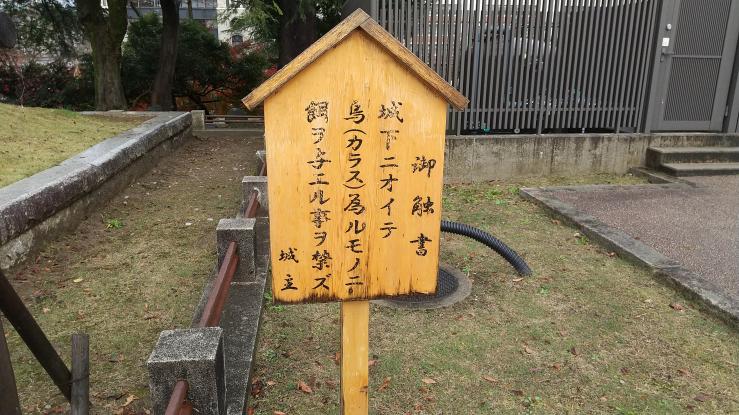 御触書
城下ニオイテ
烏(カラス)為ルモノニ
餌ヲ与エル事ヲ禁ズ
城主